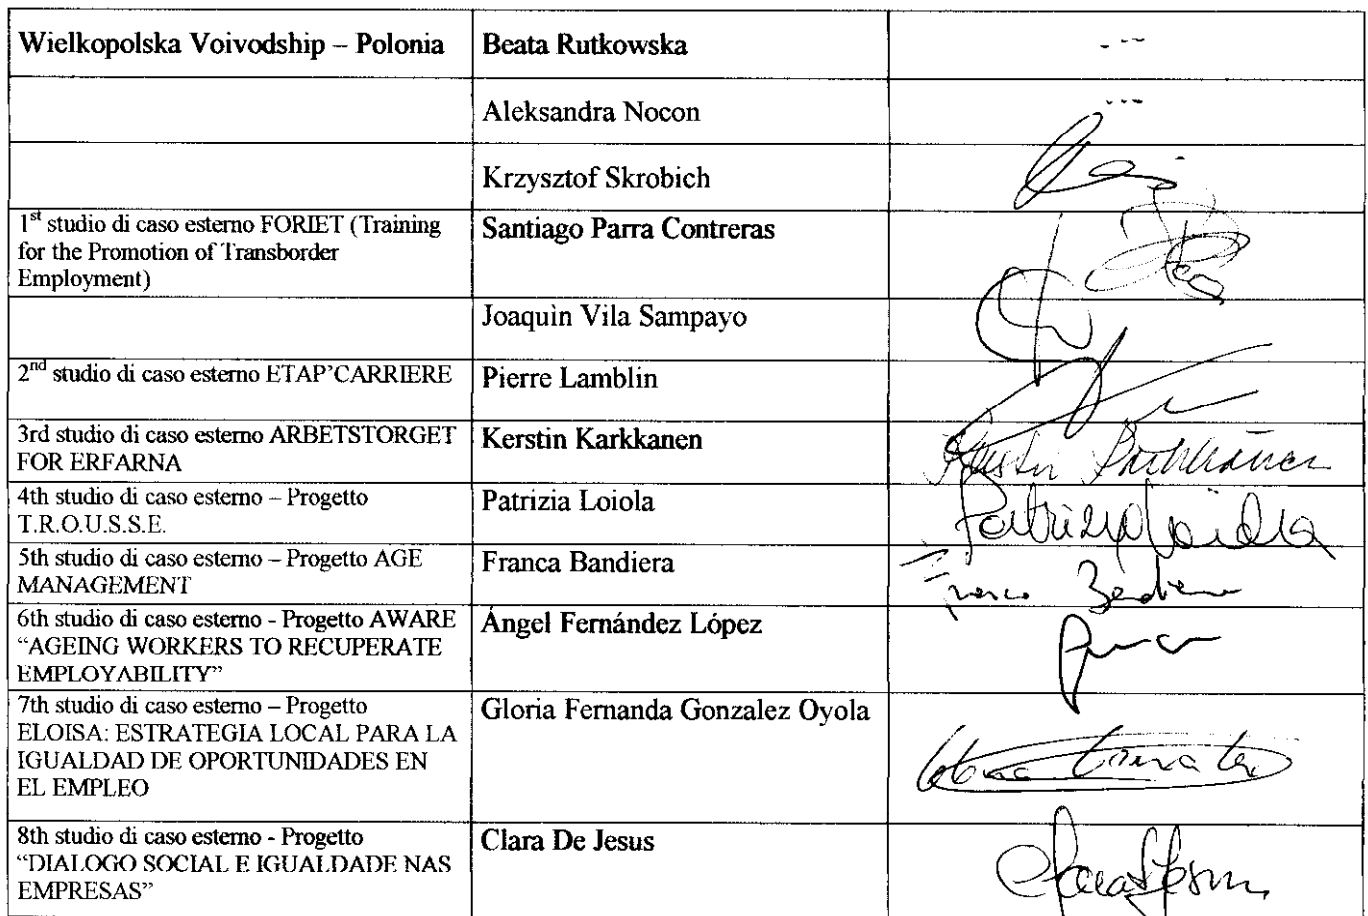 Wielkopolska Voivodship – Polonia
Beata Rutkowska
---
Aleksandra Nocon
---
Krzysztof Skrobich
1st studio di caso esterno FORIET (Training
for the Promotion of Transborder
Employment)
Santiago Parra Contreras
Joaquìn Vila Sampayo
2nd studio di caso esterno ETAP’CARRIERE
Pierre Lamblin
3rd studio di caso esterno ARBETSTORGET
FOR ERFARNA
Kerstin Karkkanen
4th studio di caso esterno – Progetto
T.R.O.U.S.S.E.
Patrizia Loiola
Patrizia Loiola
5th studio di caso esterno – Progetto AGE
MANAGEMENT
Franca Bandiera
Franca Bandiera
6th studio di caso esterno - Progetto AWARE
“AGEING WORKERS TO RECUPERATE
EMPLOYABILITY”
Ángel Fernández López
7th studio di caso esterno – Progetto
ELOISA: ESTRATEGIA LOCAL PARA LA
IGUALDAD DE OPORTUNIDADES EN
EL EMPLEO
Gloria Fernanda Gonzalez Oyola
8th studio di caso esterno - Progetto
“DIALOGO SOCIAL E IGUALDADE NAS
EMPRESAS”
Clara De Jesus